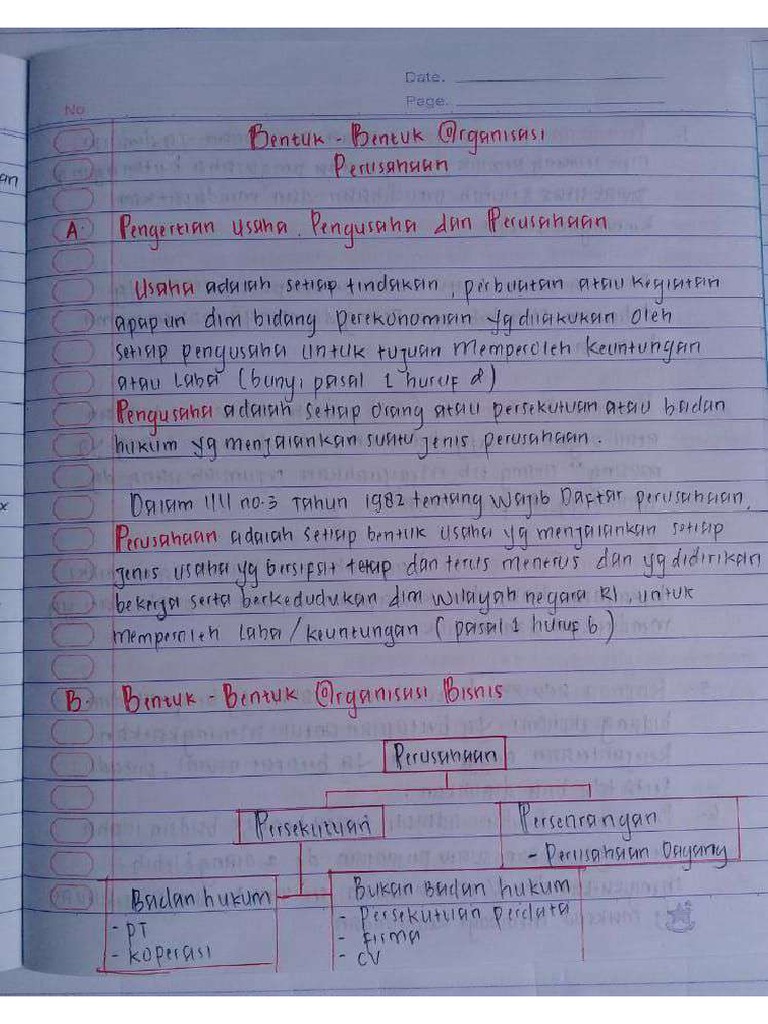 Date.
Page.
No
an
x
Bentuk - Bentuk Organisasi
Perusahaan
A. Pengertian Usaha, Pengusaha dan Perusahaan
Usaha adalah setiap tindakan, perbuatan atau kegiatan
apapun dlm bidang perekonomian yg dilakukan oleh
setiap pengusaha untuk tujuan memperoleh keuntungan
atau Laba (bunyi pasal 1 huruf d)
Pengusaha adalah setiap orang atau persekutuan atau badan
hukum yg menjalankan suatu jenis perusahaan.
Dalam UU no.3 Tahun 1982 tentang Wajib Daftar perusahaan,
Perusahaan adalah setiap bentuk usaha yg menjalankan setiap
jenis usaha yg bersifat tetap dan terus menerus dan yg didirikan
bekerja serta berkedudukan dlm wilayah negara RI, untuk
memperoleh Laba/keuntungan (pasal 1 huruf b)
B. Bentuk - Bentuk Organisasi Bisnis
Perusahaan
Persekutuan
Perseorangan
- Perusahaan Dagang
Badan hukum
- PT
- Koperasi
Bukan Badan hukum
- Persekutuan perdata
- Firma
- CV